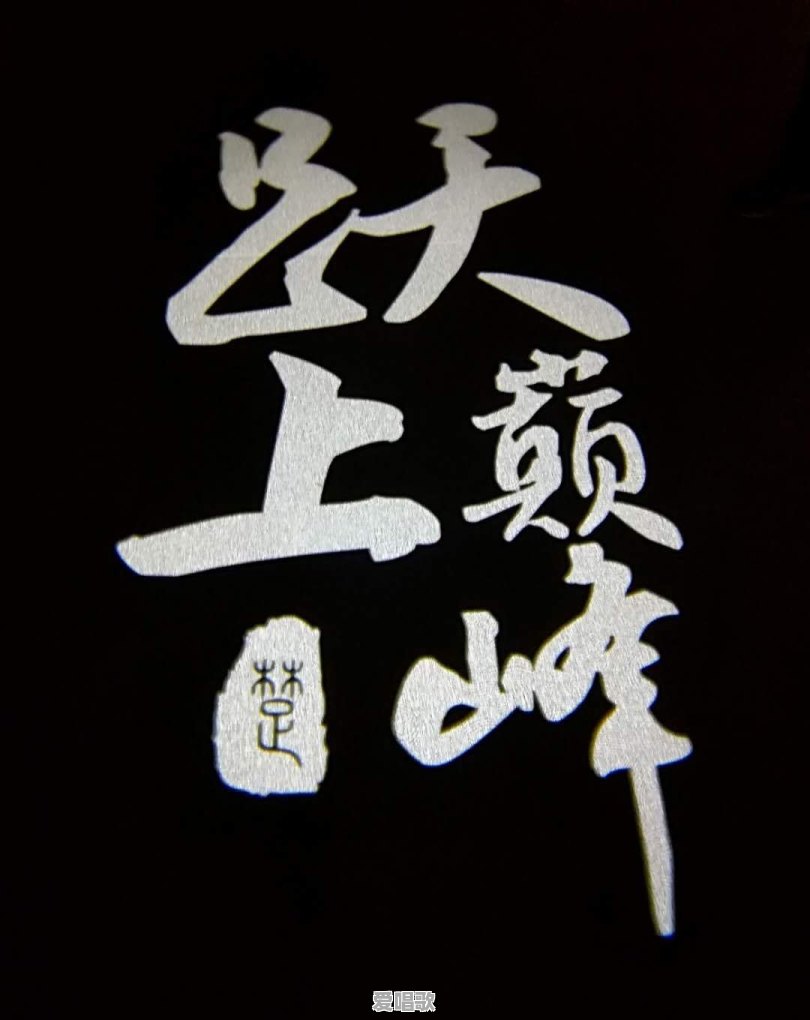 跃上
巅峰
楚
爱唱歌